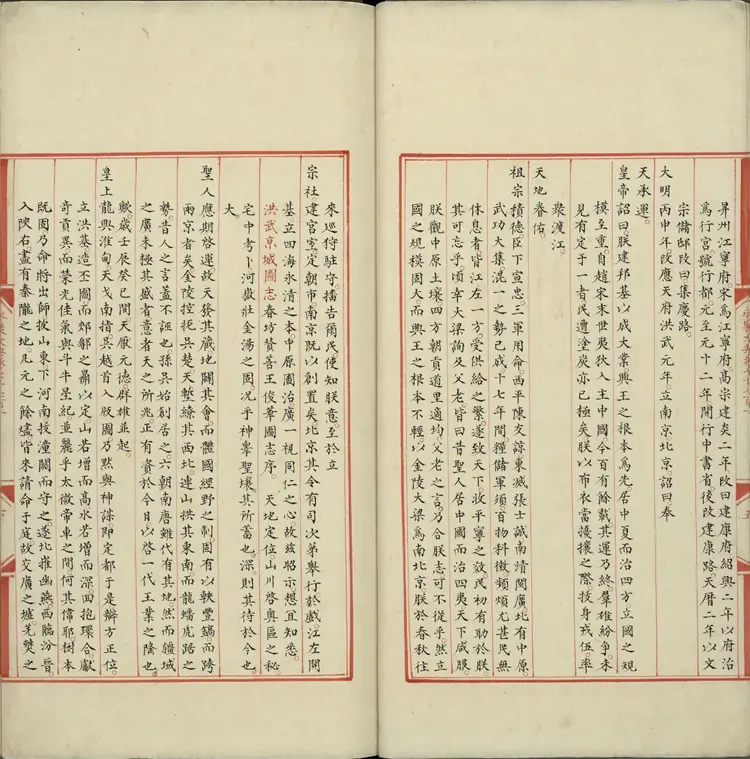 昇州江寧府宋爲江寧府高宗建炎二年改曰建康府紹興二年以府治
爲行宮號行都元至元十二年開行中書省後改建康路天曆二年以文
宗儲邸改曰集慶路
大明丙申年改應天府洪武元年立南京北京詔曰奉
天承運
皇帝詔曰朕建邦基以成大業興王之根本爲先居中夏而治四方立國之規
模至重自趙宋末世夷狄入主中國今百有餘載其運乃終羣雄紛爭未
見有定于一者民遭塗炭亦已極矣朕以布衣當擾攘之際投身戎伍率
衆渡江
天地眷佑
祖宗積德臣下宣忠三軍用命西平陳友諒東滅張士誠南靖閩廣北有中原
武功大集混一之勢已成十七年間糧儲軍須百物科徵頻煩尤甚民無
休息者皆江左一方受供給之繁遂致天下汝平寧之效民初有助於朕
其可忘乎頃幸大梁詢及父老皆曰昔聖人居中國而治四夷天下咸服
朕觀中原土壤四方朝貢道里適均父老之言乃合朕志可不從乎然立
國之規模固大而興王之根本不輕以金陵大梁爲南北京朕於春秋往
來巡狩駐守播告爾民使知朕意至於立
宗社建宮室定朝市南京旣以創置矣北京其令有司次第舉行於戲江左開
基立四海永清之本中原圖治廣一視同仁之心故兹昭示想宜知悉
洪武京城圖志春坊贊善王俊華圖志序 天地定位山川啓奧區之秘
宅中考卜河嶽壯金湯之固况乎神臯聖壤其所蓄也深則其待於今也
大
聖人應期啓運故天發其藏地闢其會而體國經野之制固有以軼豐鎬而跨
兩京者矣金陵控扼吳楚天塹繚其西北連山拱其東南而龍蟠虎踞之
勢昔人之言蓋不誣也孫吳始創居之六朝南唐雖代有其地然而疆域
之廣未極其盛者意者天之所兆正有資於今日以啓一代王業之隆也
歟歲壬辰癸巳間天厭元德群雄並起
皇上龍興淮甸天戈南指吳越首入版圖乃默與神謀即定都于是辯方正位
立洪基造丕圖而郊鄽之鼎以定山若增而高水若增而深面抱環合獻
奇貢異而榮光佳氣與斗牛星紀並麗乎太微帝車之間何其偉耶樹本
旣固乃命將出師拔山東下河南拔潼關而守之遂北摧幽燕西臨汾晉
入陝右盡有秦隴之地凡元之餘燼皆來請命于庭故交廣之墟羌僰之